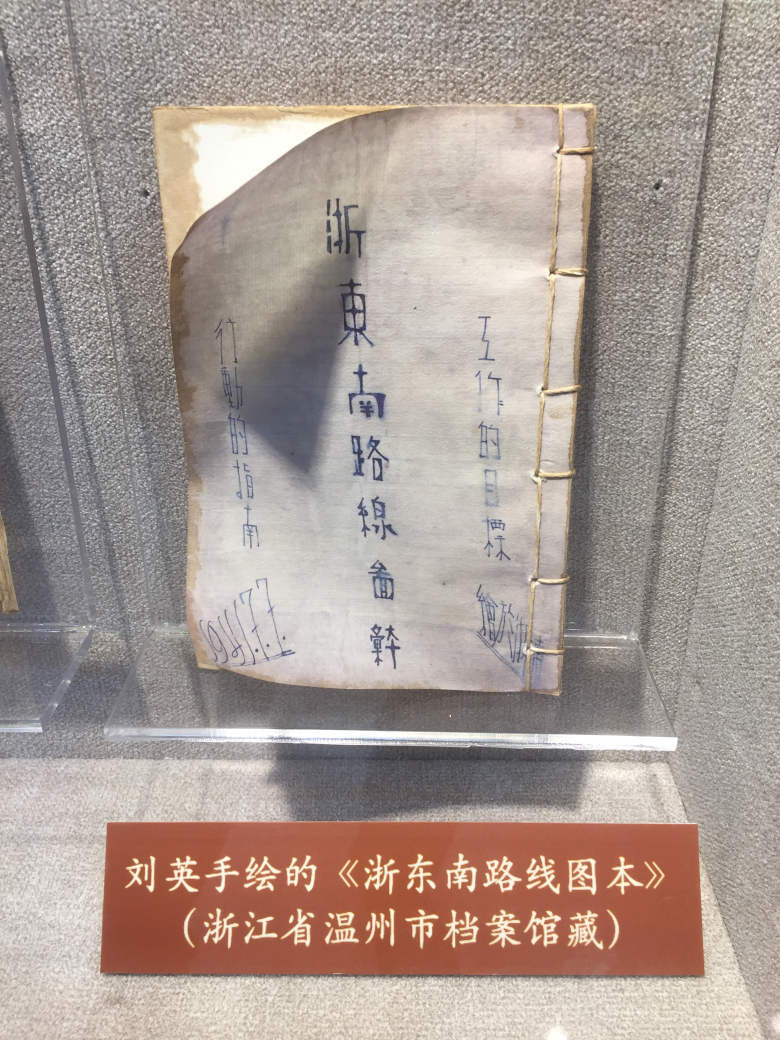 工作的目標
浙東南路線畣
行動的指南
刘英手绘的《浙东南路线图本》
(浙江省温州市档案馆藏)